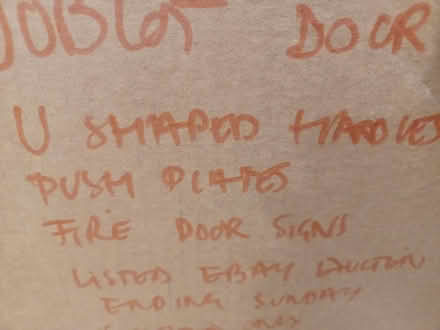 JOBLOT DOOR
U SHAPED HANDLES
PUSH PLATES
FIRE DOOR SIGNS
LISTED EBAY AUCTION
ENDING SUNDAY